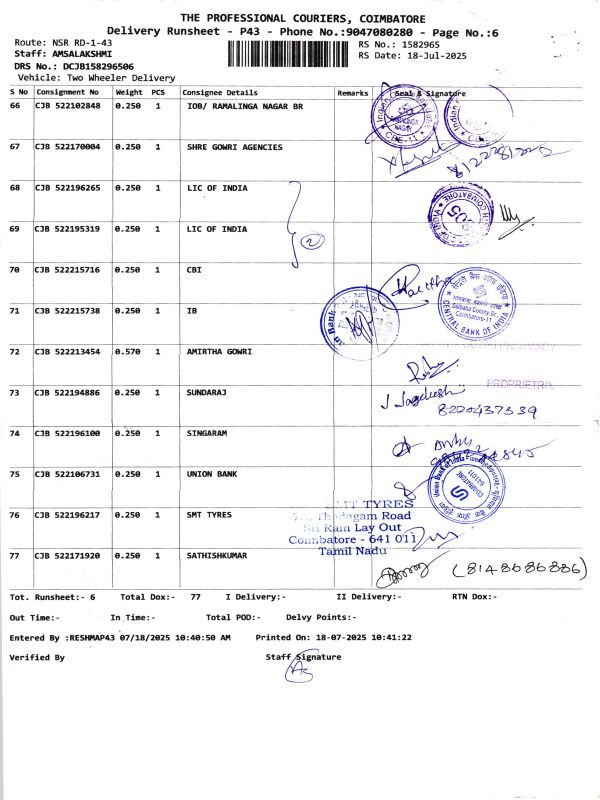 THE PROFESSIONAL COURIERS, COIMBATORE
Delivery Runsheet - P43 - Phone No.:9047080280 - Page No.:6
Route: NSR RD-1-43
RS No.: 1582965
Staff: AMSALAKSHMI
RS Date: 18-Jul-2025
DRS No.: DCJB158296506
Vehicle: Two Wheeler Delivery
S No Consignment No Weight PCS Consignee Details Remarks Seal & Signature
66 CJB 522102848 0.250 1 IOB/ RAMALINGA NAGAR BR
67 CJB 522170004 0.250 1 SHRE GOWRI AGENCIES
68 CJB 522196265 0.250 1 LIC OF INDIA
69 CJB 522195319 0.250 1 LIC OF INDIA
2
70 CJB 522215716 0.250 1 CBI
CENTRAL BANK OF INDIA
Coimbatore-11
71 CJB 522215738 0.250 1 IB
72 CJB 522213454 0.570 1 AMIRTHA GOWRI
PROPRIETRIX
73 CJB 522194886 0.250 1 SUNDARAJ
J Jagdeesh
8220437539
74 CJB 522196100 0.250 1 SINGARAM
75 CJB 522106731 0.250 1 UNION BANK
COIMBATORE
641011
76 CJB 522196217 0.250 1 SMT TYRES
SMT TYRES
Thadagam Road
Sri Ram Lay Out
Coimbatore - 641 011
Tamil Nadu
77 CJB 522171920 0.250 1 SATHISHKUMAR
(8148686886)
Tot. Runsheet:- 6 Total Dox:- 77 I Delivery:- II Delivery:- RTN Dox:-
Out Time:- In Time:- Total POD:- Delvy Points:-
Entered By :RESHMAP43 07/18/2025 10:40:50 AM Printed On: 18-07-2025 10:41:22
Verified By Staff Signature